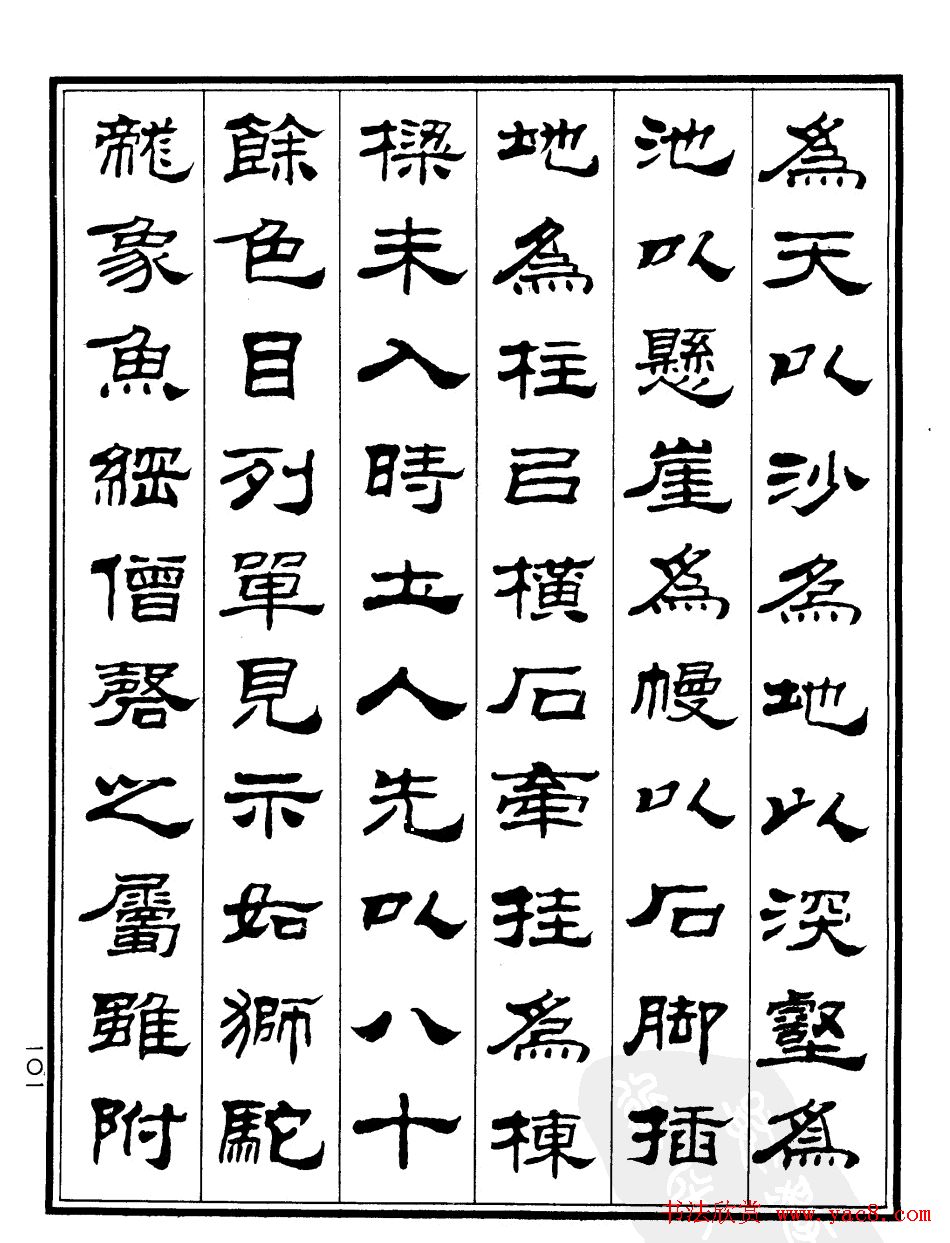 為天以沙為地以深壑為
池以懸崖為幔以石脚插
地為柱以橫石牽挂為棟
樑未入時土人先以八十
餘色目列單見示如獅駝
龍象魚網僧磬之屬雖附
101
书法欣赏 www.yac8.com